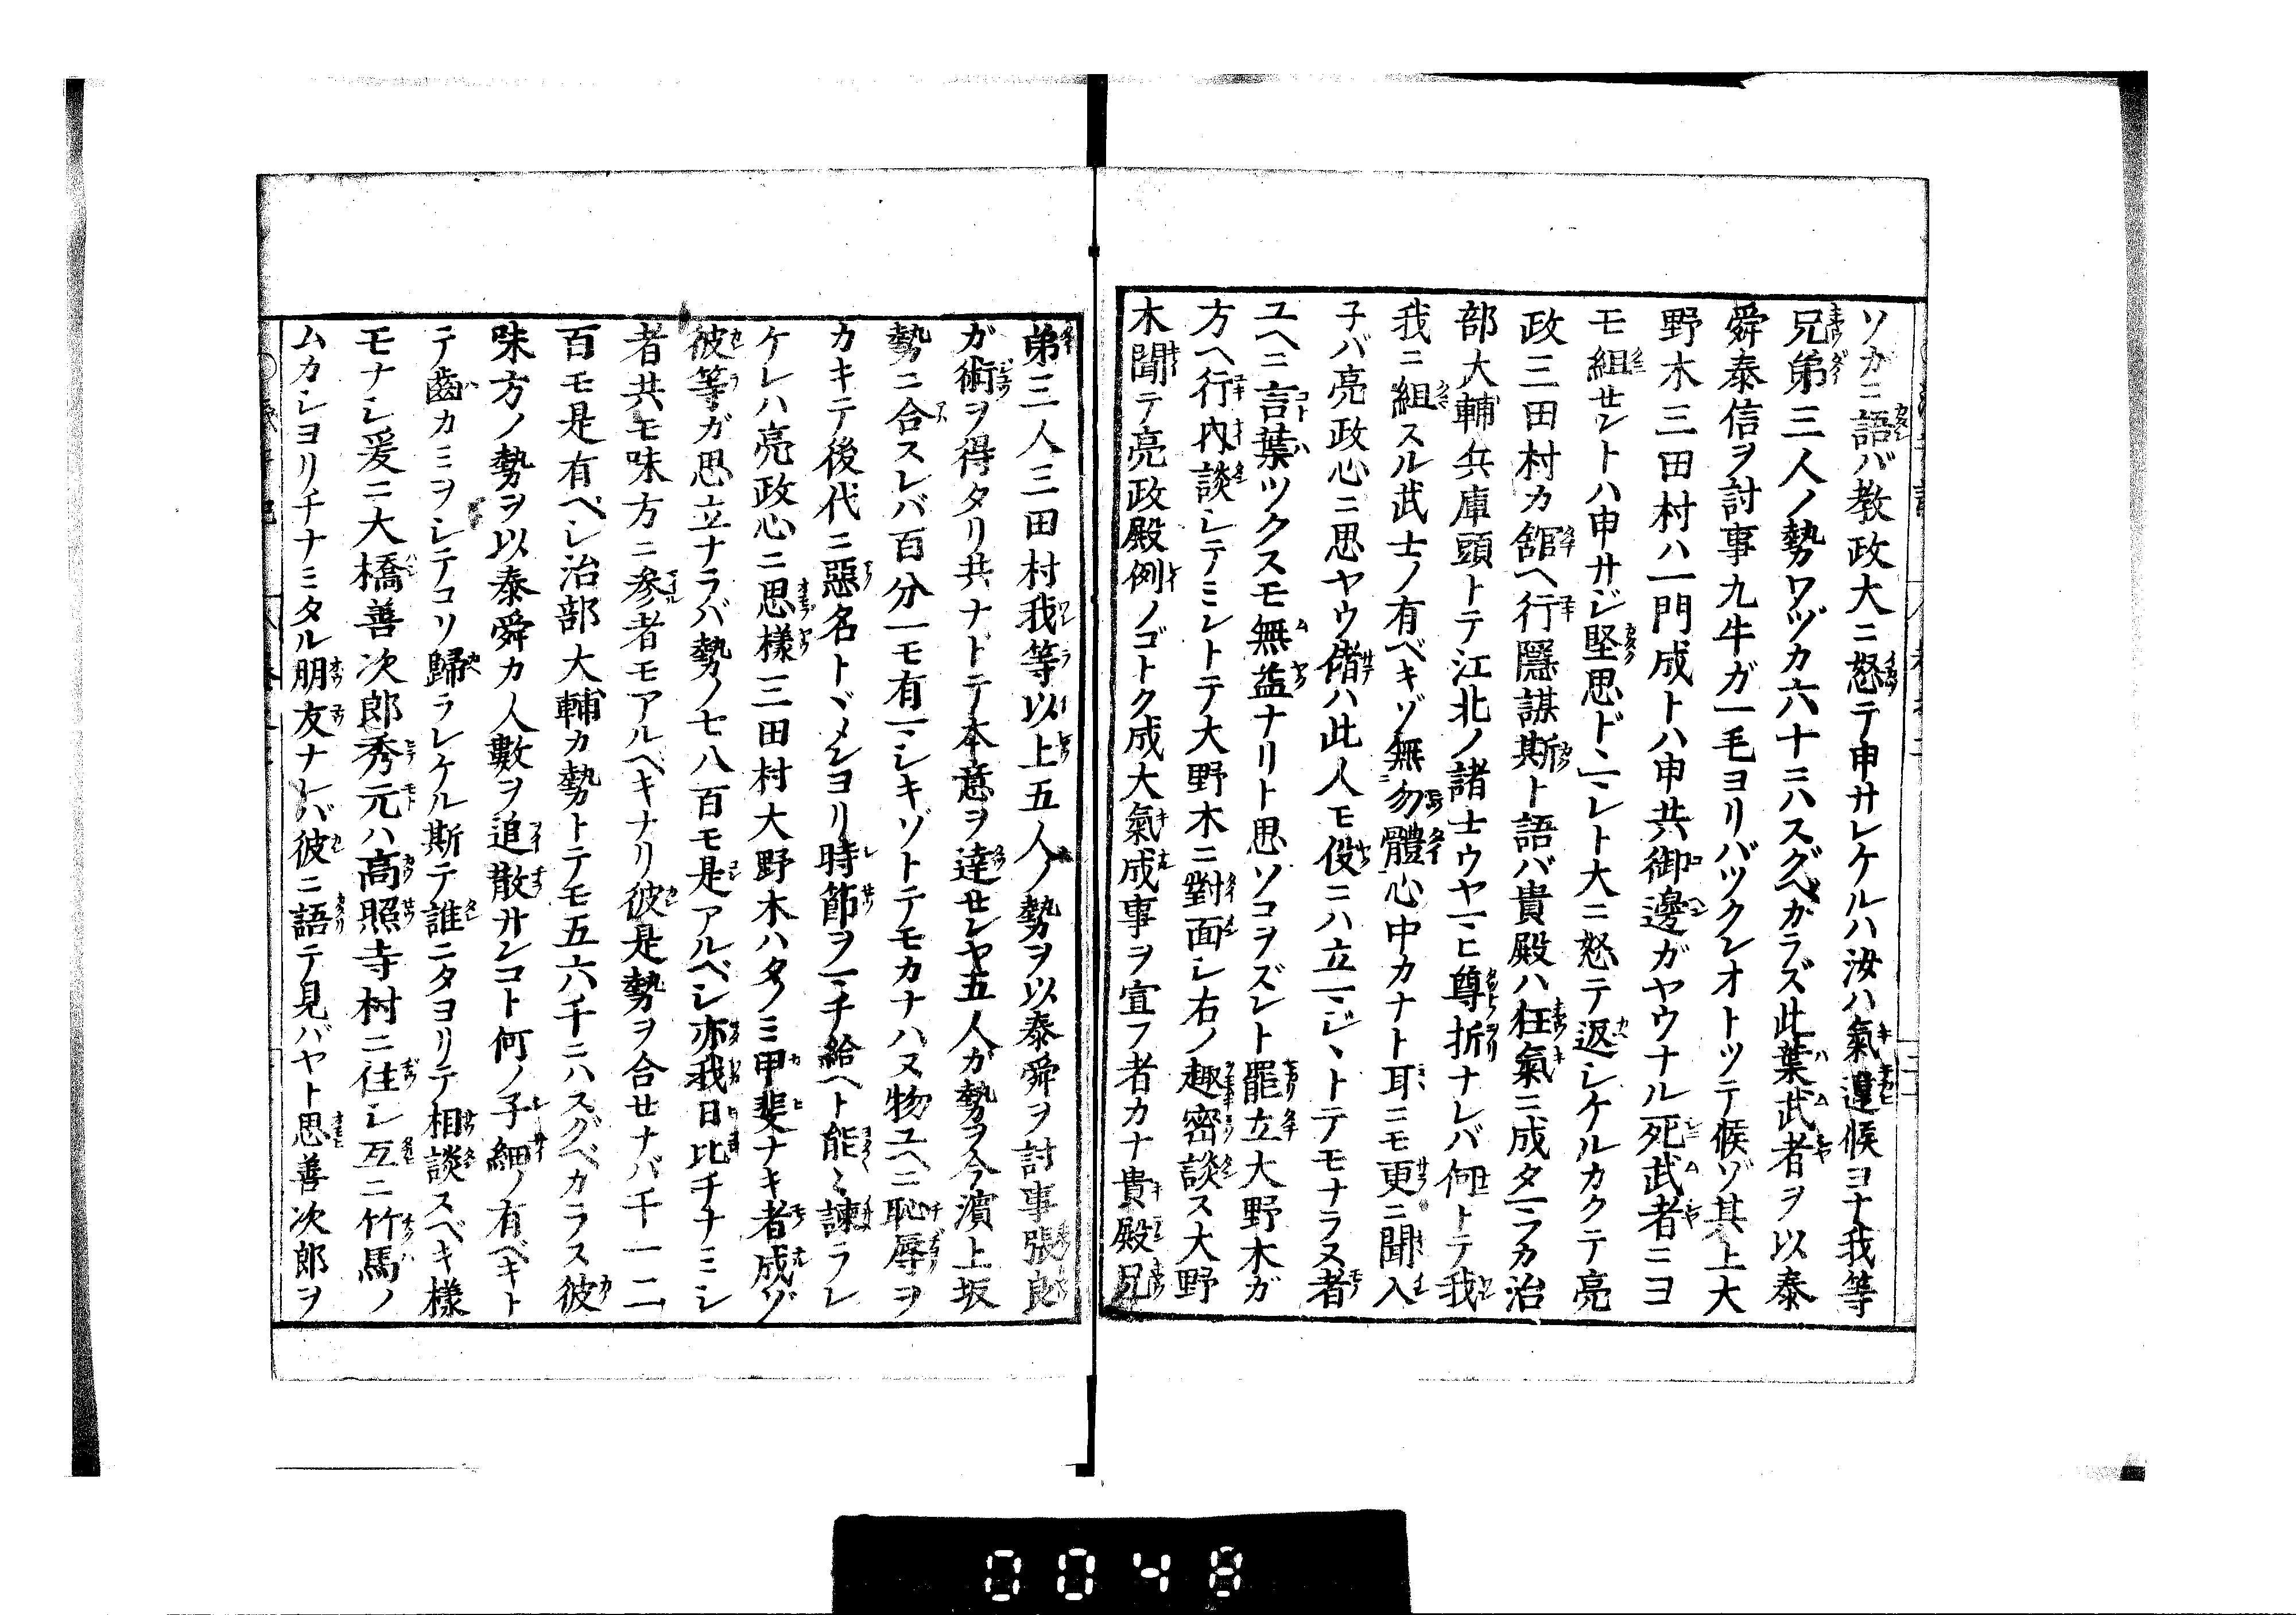 ソカニ語バ教政大ニ怒テ申サレケルハ汝ハ氣違候ヨナ我等
兄弟三人ノ勢ワヅカ六十ニハスグベガラズ此葉武者ヲ以泰
舜泰信ヲ討事九牛ガ一毛ヨリバツクレオトツテ候ゾ其上大
野木三田村ハ一門成トハ申共御邊ガヤウナル死武者ニヨ
モ組セントハ申サジ堅思トヾマレト大ニ怒テ返シケルカクテ亮
政三田村カ舘ヘ行隱謀斯ト語バ貴殿ハ狂氣ニ成タマフカ治
部大輔兵庫頭トテ江北ノ諸士ウヤマヒ尊折ナレバ何トテ我
我ニ組スル武士ノ有ベキゾ無勿體心中カナト耳ニモ更ニ聞入
子バ亮政心ニ思ヤウ偖ハ此人モ役ニハ立マジヽトテモナラヌ者
ユヘニ言葉ツクスモ無益ナリト思ソコヲズント罷立大野木ガ
方ヘ行内談シテミントテ大野木ニ對面シ右ノ趣密談ス大野
木聞テ亮政殿例ノゴトク成大氣成事ヲ宣フ者カナ貴殿兄
弟三人三田村我等以上五人ノ勢ヲ以泰舜ヲ討事張良
ガ術ヲ得タリ共ナドテ本意ヲ達センヤ五人ガ勢ヲ今濱上坂
勢ニ合スレバ百分一モ有マシキゾトテモカナハヌ物ユヘニ恥辱ヲ
カキテ後代ニ惡名トヾメンヨリ時節ヲマチ給ヘト能々諫ラレ
ケレハ亮政心ニ思樣三田村大野木ハタノミ甲斐ナキ者成ゾ
彼等ガ思立ナラバ勢ノ七八百モ是アルベシ亦我日比チナミシ
者共モ味方ニ参者モアルヘキナリ彼是勢ヲ合せナバ千一二
百モ是有ベシ治部大輔カ勢トテモ五六千ニハスグベカラス彼
味方ノ勢ヲ以泰舜カ人數ヲ追散サンコト何ノ子細ノ有ベキト
テ齒カミヲシテコソ歸ラレケル斯テ誰ニタヨリテ相談スベキ樣
モナシ爰ニ大橋善次郎秀元ハ高照寺村ニ住シ互ニ竹馬ノ
ムカシヨリチナミタル朋友ナレバ彼ニ語テ見バヤト思善次郎ヲ
0048